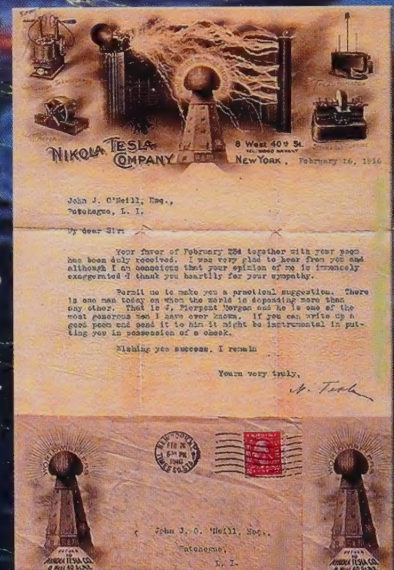 NIKOLA TESLA
COMPANY
8 West 40th St.
NEW YORK, February 16, 1916
John J. O'Neill, Esq.,
Patchogue, L. I.
My dear Sir:
Your favor of February 23d together with your poem
has been duly received. I was very glad to hear from you and
although I am conscious that your opinion of me is immensely
exaggerated I thank you heartily for your sympathy.
Permit me to make you a practical suggestion. There
is one man today on whom the world is depending more than
any other. That is J. Pierpont Morgan and he is one of the
most generous men I have ever known. If you can write up a
good poem and send it to him it might be instrumental in put-
ting you in possession of a check.
Wishing you success, I remain
Yours very truly,
N. Tesla
NEW YORK
FEB
PM
John J. O'Neill, Esq.,
Patchogue,
L. I.
RETURN
TO
NIKOLA TESLA CO.
8 West 40 St. N.Y.
RETURN
TO
NIKOLA TESLA CO.
8 West 40 St. N.Y.